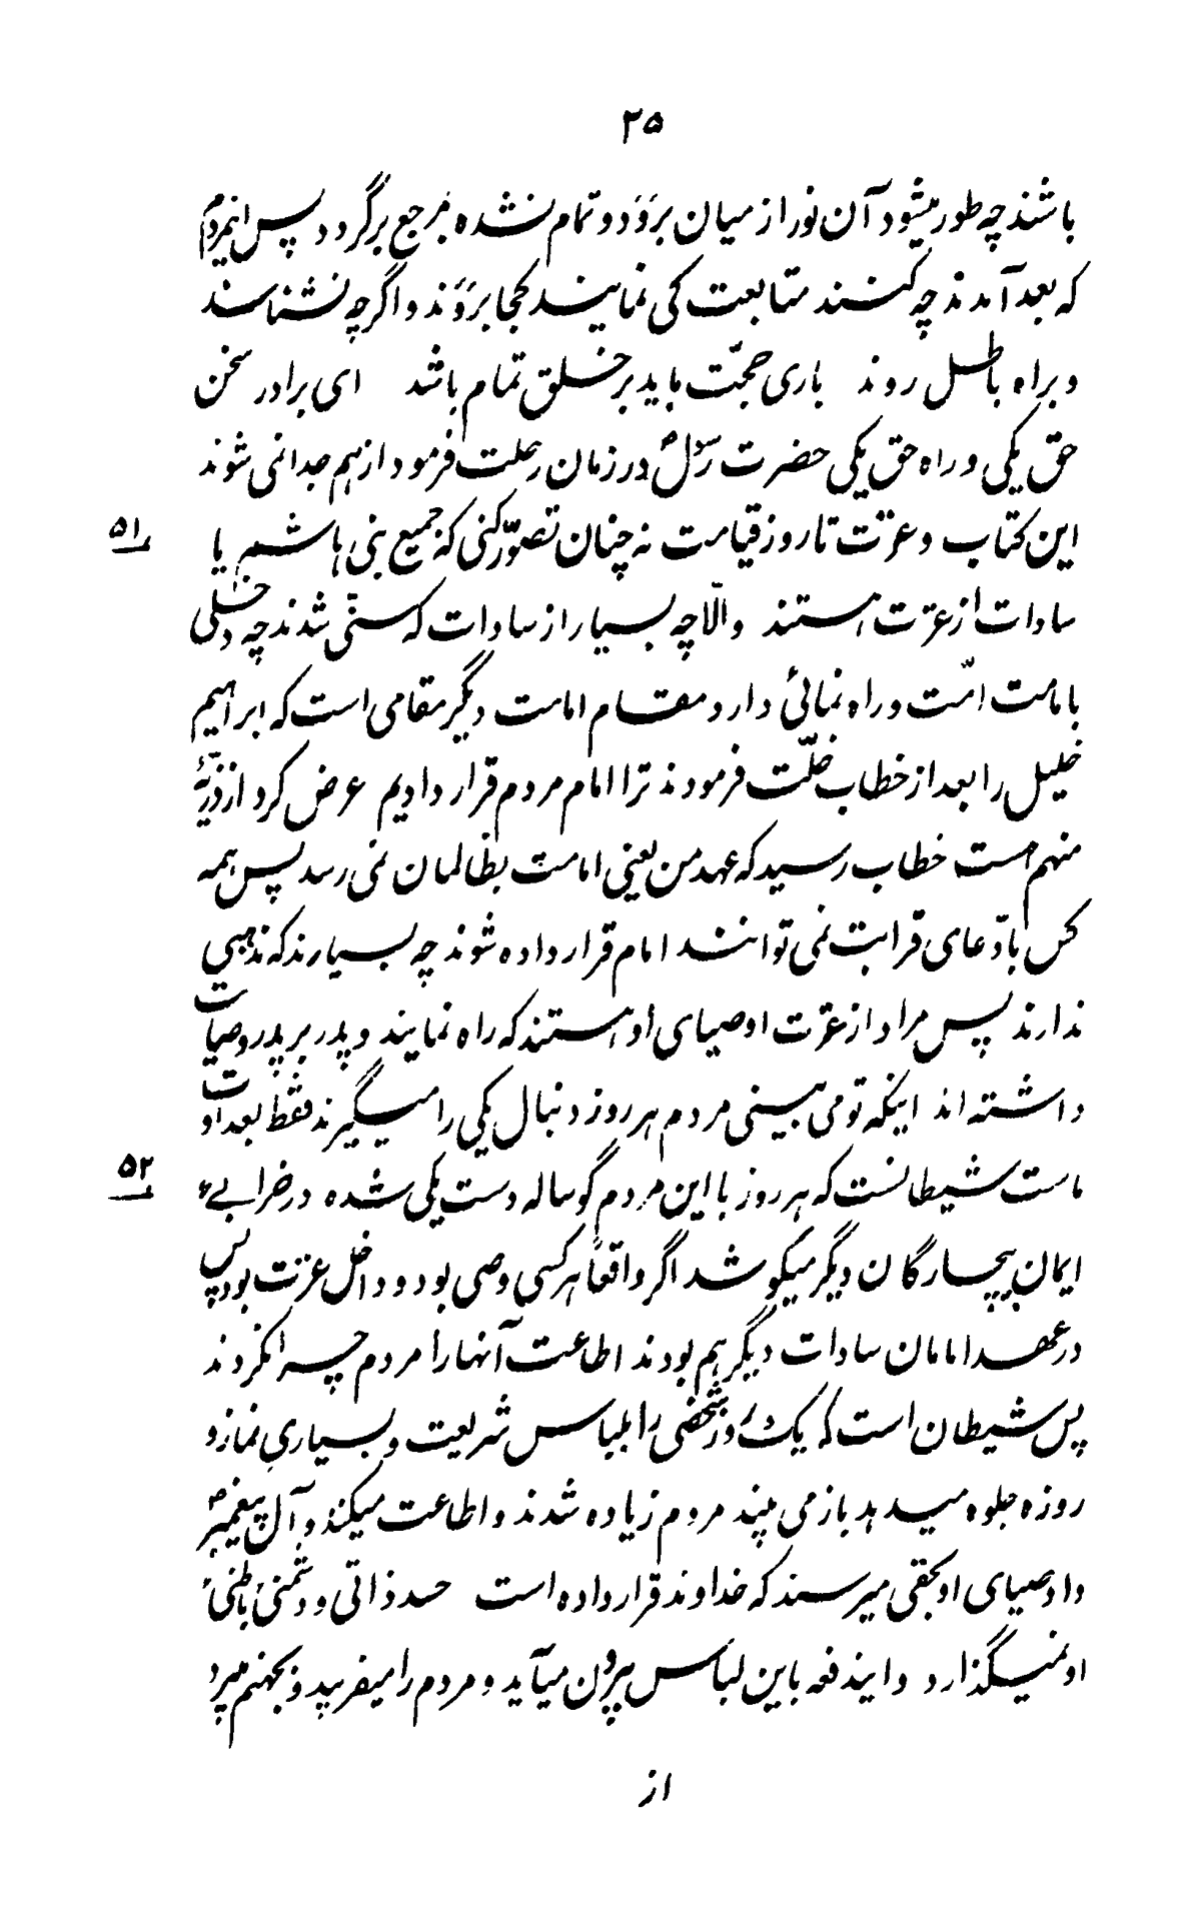 ۲۵
باشند چه طور میشود آن نور از میان بروَد و تمام نشده مرجع برگردد پس اینمردم
که بعد آمدند چه کنند متابعت کی نمایند کجا بروَند و اگرچه نشناسند
و براه باطل روند باری حجّت باید بر خلق تمام باشد ای برادر سخن
حق یکی و راه حق یکی حضرت رسولؐ در زمان رحلت فرمود از هم جدا نمی شوند
این کتاب و عترت تا روز قیامت نه چنان تصوّر کنی که جمیع بنی هاشم یا ۵۱
سادات از عترت هستند والّا چه بسیار از سادات که سنّی شدند چه دخلی
بامامت امّت و راه نمائی دارد مقام امامت دیگر مقامی است که ابراهیم
خلیل را بعد از خطاب خلّت فرمودند ترا امام مردم قرار دادیم عرض کرد از ذریّهٔ
منهم هست خطاب رسید که عهد من یعنی امامت بظالمان نمی رسد پس همه
کس بادّعای قرابت نمی توانند امام قرار داده شوند چه بسیارند که مذهبی
ندارند پس مراد از عترت اوصیای او هستند که راه نمایند و پدر بر پدر وصیات
داشته اند اینکه تو می بینی مردم هر روز دنبال یکی را میگیرند فقط بعداوت
ماست شیطانست که هر روز با این مردم گوساله دست یکی شده در خرابیء ۵۲
ایمان بیچارگان دیگر میکوشد اگر واقعاً هر کسی وصی بود و داخل عترت بود پس
در عهد امامان سادات دیگر هم بودند اطاعت آنها را مردم چرا نکردند
پس شیطان است که یک روز شخصی را بلباس شریعت و بسیاری نماز و
روزه جلوه میدهد باز می بیند مردم زیاده شدند و اطاعت میکنند و آل پیغمبرؐ
و اوصیای او بحقی میرسند که خداوند قرار داده است حسد ذاتی و دشمنیٔ باطنیٔ
او نمیگذارد و ایندفعه باین لباس بیرون میآید و مردم را میفریبد و بجهنم میبرد
از